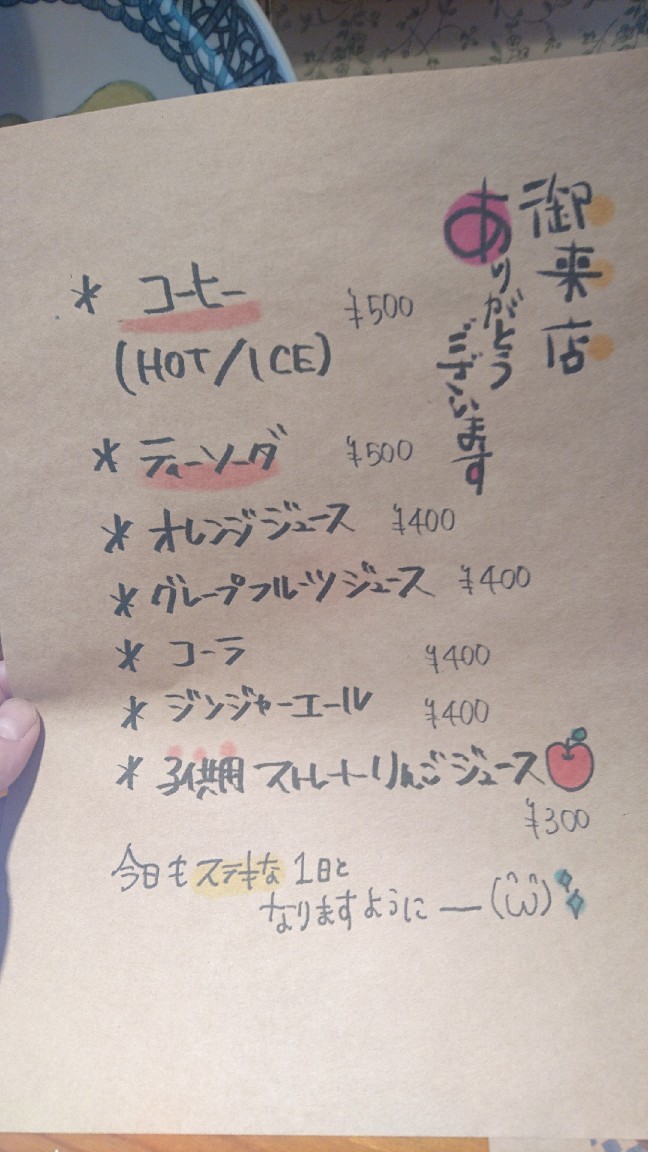 御来店
ありがとう
ございます
* コーヒー ¥500
(HOT/ICE)
* ティーソーダ ¥500
* オレンジジュース ¥400
* グレープフルーツジュース ¥400
* コーラ ¥400
* ジンジャーエール ¥400
* 子供用 ストレートりんごジュース
¥300
今日もステキな1日と
なりますようにー(^ω^)